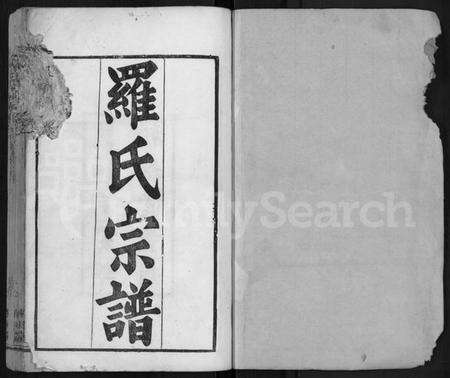 羅氏宗譜
FamilySearch